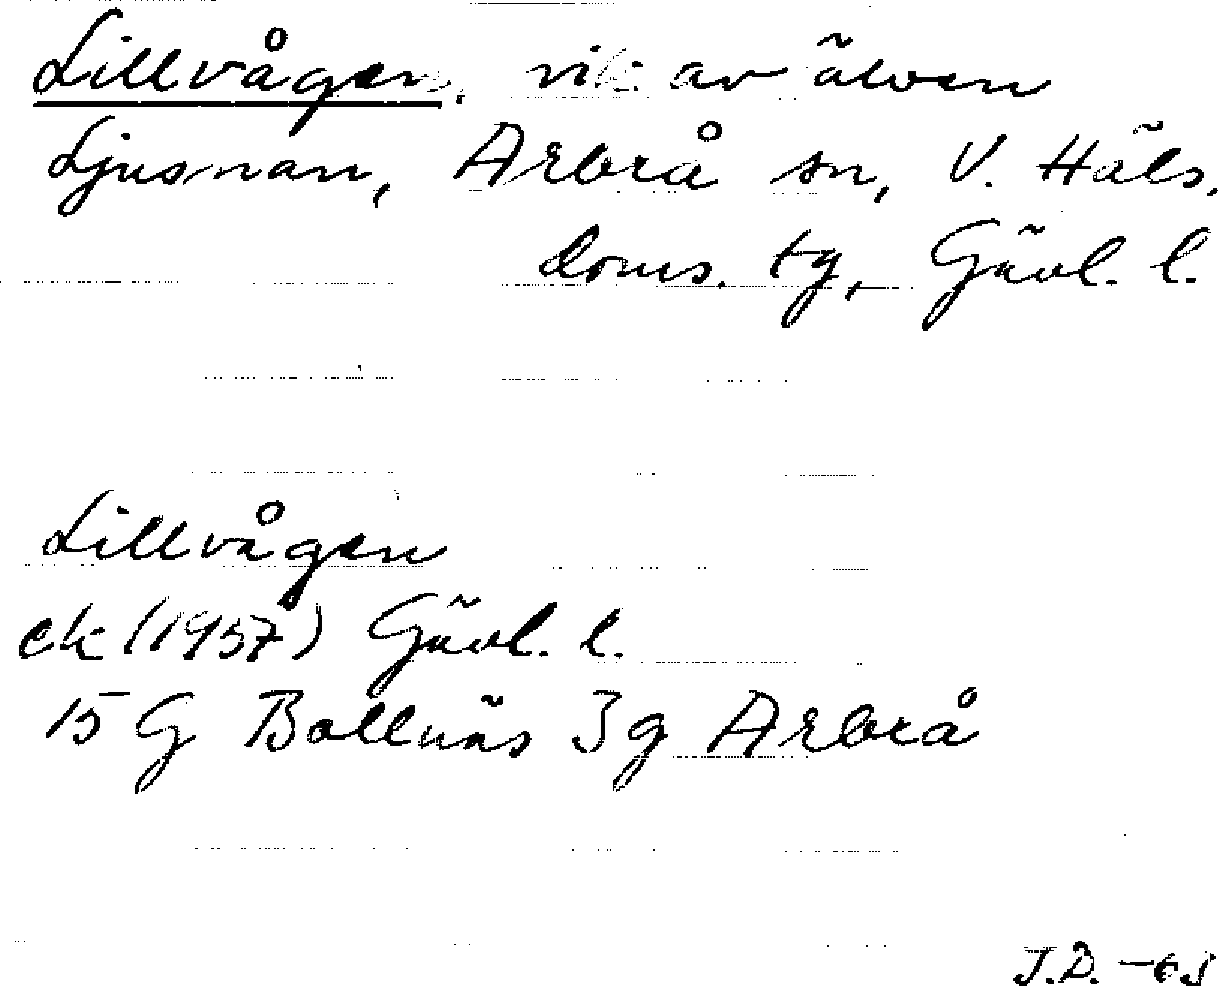 Lillvågen, vik av älven
Ljusnan, Arbrå sn, V. Häls.
doms. tg, Gävl. l.
Lillvågen
ek (1957) Gävl. l.
15 G Bollnäs 3g Arbrå
J.D.